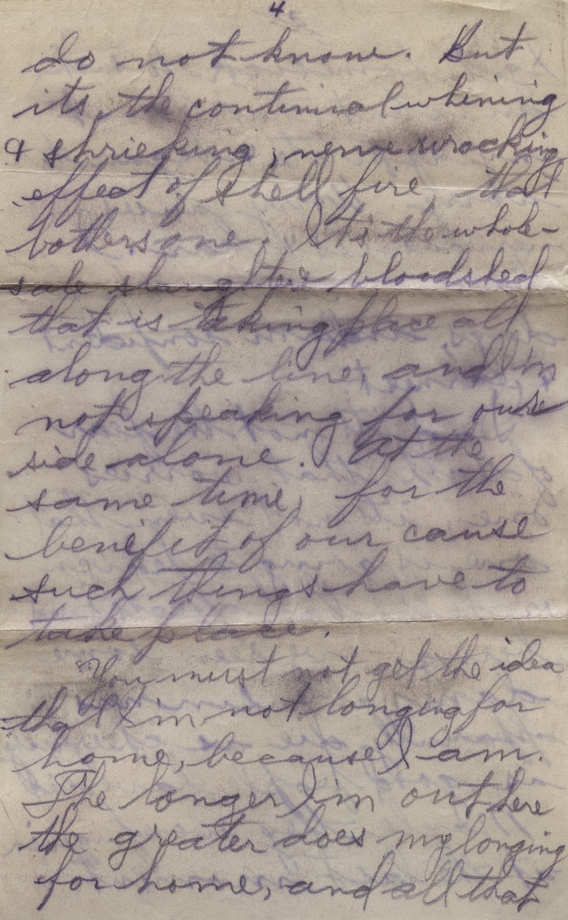 4
do not know. But
its, the continual whining
& shrieking, nerve wracking
effect of shell fire, that
bothers one. Its the whole-
sale slaughter bloodshed
that is taking place all
along the line, and I'm
not speaking for ours
side alone. At the
same time, for the
benefit of our cause
such things have to
take place.
You must not get the idea
that I'm not longing for
home, because I am.
The longer I'm out here
the greater does my longing
for home, and all that